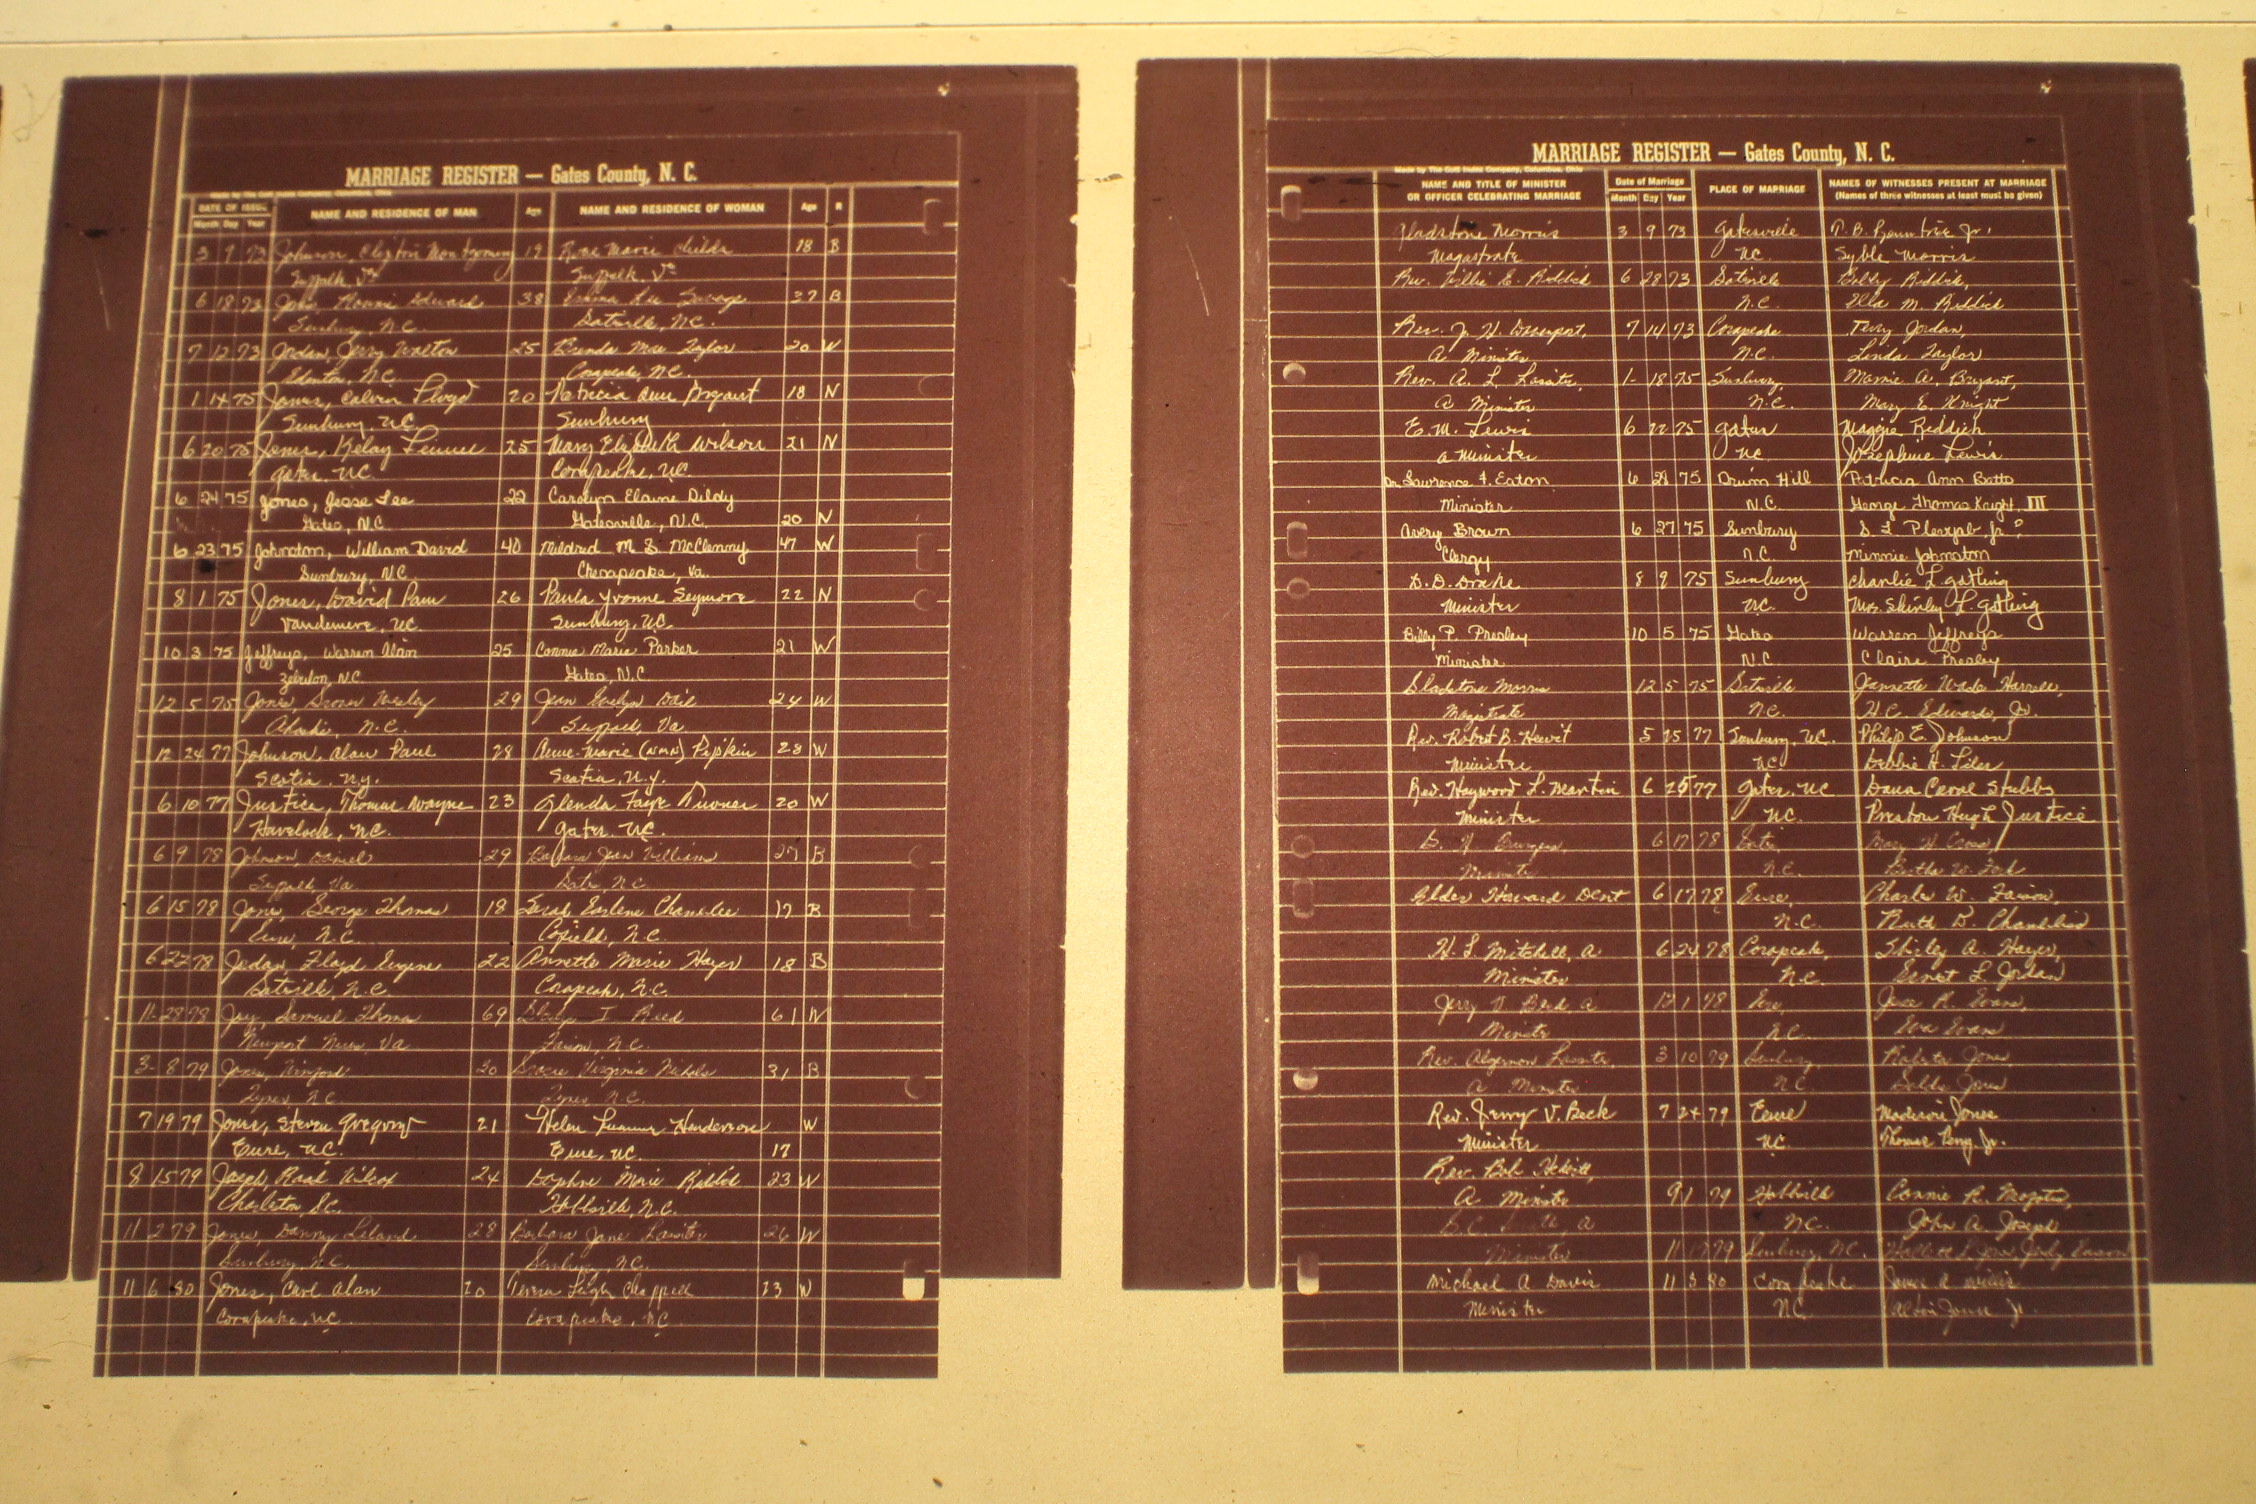 MARRIAGE REGISTER — Gates County, N. C.
DATE OF ISSUE NAME AND RESIDENCE OF MAN Age NAME AND RESIDENCE OF WOMAN Age R
Month Day Year
3 9 73 Johnson, Clifton Montgomery 19 Rose Marie Childs 18 B
Suffolk Va Suffolk, Va
6 18 73 Ronnie Edward 38 Emma Lee Savage 37 B
Sunbury, N.C. Gatesville, N.C.
7 12 73 Jordan, Jerry Walton 25 Brenda Mae Taylor 20 W
Edenton, N.C. Corapeake, N.C.
1 14 75 James, Calvin Floyd 20 Patricia Ann Bryant 18 N
Sunbury, NC Sunbury
6 20 75 Jones, Kelay 25 Mary Elizabeth Wilson 21 N
Gates, NC Corapeake, NC.
6 24 75 Jones, Jesse Lee 22 Carolyn Elaine Dildy
Gates, N.C. Gatesville, N.C. 20 N
6 23 75 Johnston, William David 40 Mildred M. S. McClenny 47 W
Sunbury, N.C. Chesapeake, Va.
8 1 75 Jones, David Paul 26 Paula Yvonne Seymore 22 N
Vandemere, NC. Sunbury, NC.
10 3 75 Jeffreys, Warren Alan 25 Connie Marie Parker 21 W
Zebulon, N.C. Gates, N.C.
12 5 75 Jones, Wesley 29 Jean Evelyn Dail 24 W
Ahoskie, N.C. Suffolk, Va.
12 24 77 Johnson, Alan Paul 28 Anne-Marie (NMN) Pipkin 28 W
Scotia, N.Y. Scotia, N.Y.
6 10 77 Justice, Thomas Wayne 23 Glenda Faye Turner 20 W
Havelock, NC. Gates, NC.
6 9 78 Johnson, Daniel 29 Barbara Jean Williams 27 B
Suffolk, Va Gates, N.C.
6 15 78 Jones, George Thomas 18 Sarah Earlene Chamblee 17 B
Eure, N.C. Cofield, N.C.
6 22 78 Jordan, Floyd Eugene 22 Annette Marie Hayes 18 B
Gatesville, N.C. Corapeake, N.C.
11 28 78 Joy, Samuel Thomas 69 I. Reed 61 W
Newport News, Va Faison, N.C.
3 8 79 Jones, Winford 30 Gracie Virginia Nichols 31 B
Tyner, N.C. Tyner, N.C.
7 19 79 Jones, Steven Gregory 21 Helen Henderson W
Eure, NC. Eure, NC 17
8 15 79 Joseph, Wilcox 24 Daphne Marie Riddick 23 W
Charleston, SC. Hobbsville, N.C.
11 2 79 Jones, Danny Leland 28 Barbara Jane Lassiter 26 W
Sunbury, N.C. Sunbury, N.C.
11 6 80 Jones, Carl Alan 20 Teresa Leigh Chappell 23 W
Corapeake, NC Corapeake, NC
MARRIAGE REGISTER — Gates County, N. C.
Made by The Cott Index Company, Columbus, Ohio
NAME AND TITLE OF MINISTER Date of Marriage PLACE OF MARRIAGE NAMES OF WITNESSES PRESENT AT MARRIAGE
OR OFFICER CELEBRATING MARRIAGE Month Day Year (Names of three witnesses at least must be given)
Gladstone Morris 3 9 73 Gatesville P. B. Rountree Jr.
Magistrate NC. Syble Morris
Rev. Willie E. Riddick 6 28 73 Gatesville Bobby Riddick,
N.C. Ella M. Riddick
Rev. J. H. Davenport, 7 14 73 Corapeake Terry Jordan,
A Minister N.C. Linda Taylor
Rev. A. L. Lassiter, 1- 18 75 Sunbury, Mamie A. Bryant,
A Minister N.C. Mary E. Knight
E. M. Lewis 6 22 75 Gates Maggie Reddick
a Minister NC Josephine Lewis
Dr. Lawrence F. Eaton 6 29 75 Drum Hill Patricia Ann Batts
Minister N.C. George Thomas Knight, III
Avery Brown 6 27 75 Sunbury
Clergy N.C. Minnie Johnston
D. D. Drake 8 9 75 Sunbury Charlie L. Gatling
Minister NC. Mrs. Shirley L. Gatling
Billy P. Presley 10 5 75 Gates Warren Jeffreys
Minister N.C. Claire Presley
Gladstone Morris 12 5 75 Gatesville Jannette Wade Harrell,
Magistrate N.C. H.C. Edwards, Jr.
Rev. Robert B. Hewit 5 25 77 Sunbury, NC. Philip E. Johnson
Minister NC. Debbie H. Liles
Rev. Haywood L. Martin 6 25 77 Gates, NC Dana Carol Stubbs
Minister NC. Preston Hugh Justice
6 17 78 Gates, Mary H. Cross
Minister N.C. Bertha W.
Elder Howard Dent 6 17 78 Eure, Charles W. Faison,
N.C. Ruth D. Chamblee
H. L. Mitchell, A 6 24 78 Corapeake, Shirley A. Hayes,
Minister N.C. Ernest L. Jordan
Jerry V. Beck a 12 1 78 Eure, Jesse R. Evans,
Minister N.C. Eva Evans
Rev. Algernon Lassiter, 3 10 79 Sunbury Roberta Jones
a Minister N.C. Jones
Rev. Jerry V. Beck 7 24 79 Eure Jones
Minister NC Thomas Perry, Jr.
Rev. Bob
A Minister 9 1 79 Hobbsville Connie R.
a N.C. John A. Joseph
Minister 11 17 79 Sunbury, N.C.
Michael A Davis 11 8 80 Corapeake James A Willis
Minister NC Jones Jr.